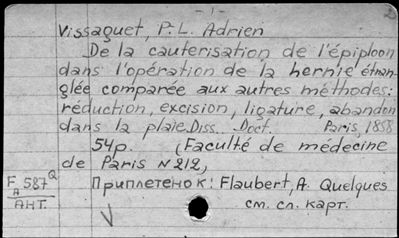 - 1 -
Vissaguet, P.-L. Adrien
De la cauterisation de l'épiploon
dans l'opération de la hernie étran-
glée comparée aux autres méthodes:
réduction, excision, ligature, abandon
dans la plaie. Diss. Doct. Paris, 1858
54p. (Faculté de médecine
de Paris N 212)
F A 587 Q
АНТ.
Приплетенок: Flaubert, A. Quelques
см. сл. карт.